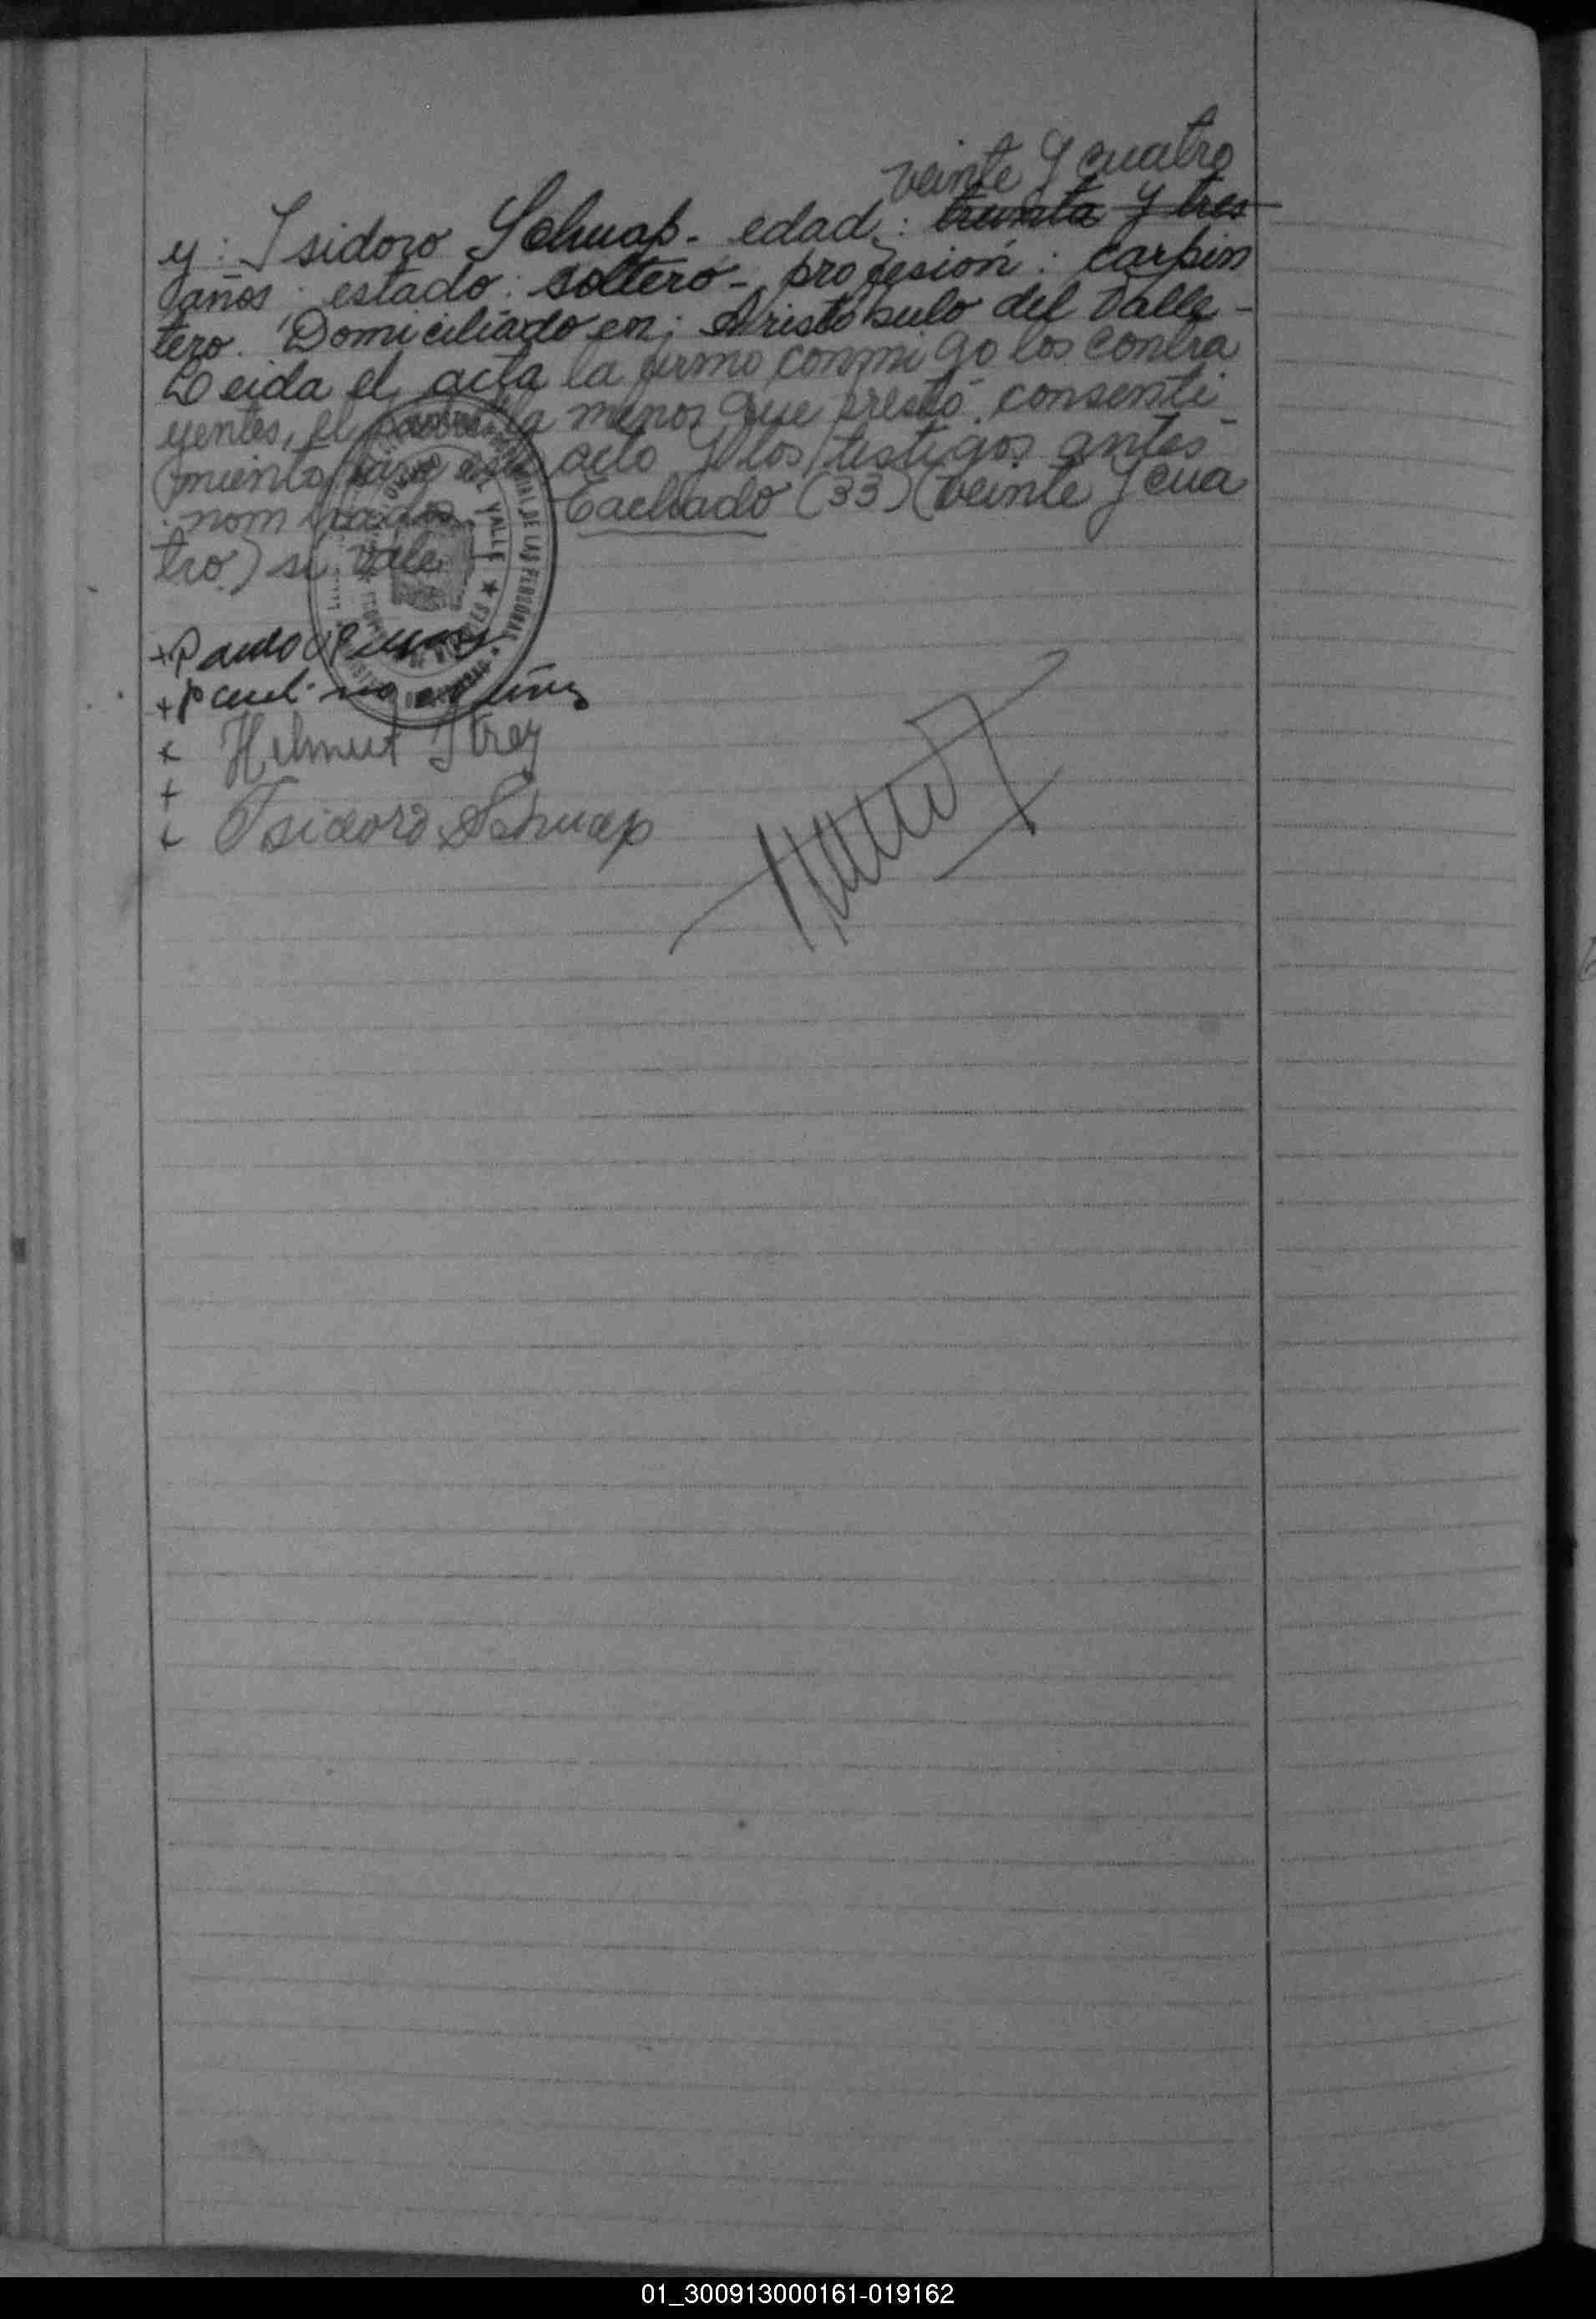 veinte y cuatro
y: Isidoro Schuap - edad: treinta y tres
años; estado: soltero - profesión: carpin
tero. Domiciliado en: Aristóbulo del Valle -
Leida el acta la firmo conmigo los contra
yentes, el padre la menor que prestó consenti
miento para este acto y los testigos antes
nombrados. Tachado (33) (veinte y cua
tro) si vale
+
+
x Helmut Strey
+
x Isidoro Schuap
DE LAS PERSONAS
VALLE
01_300913000161-019162